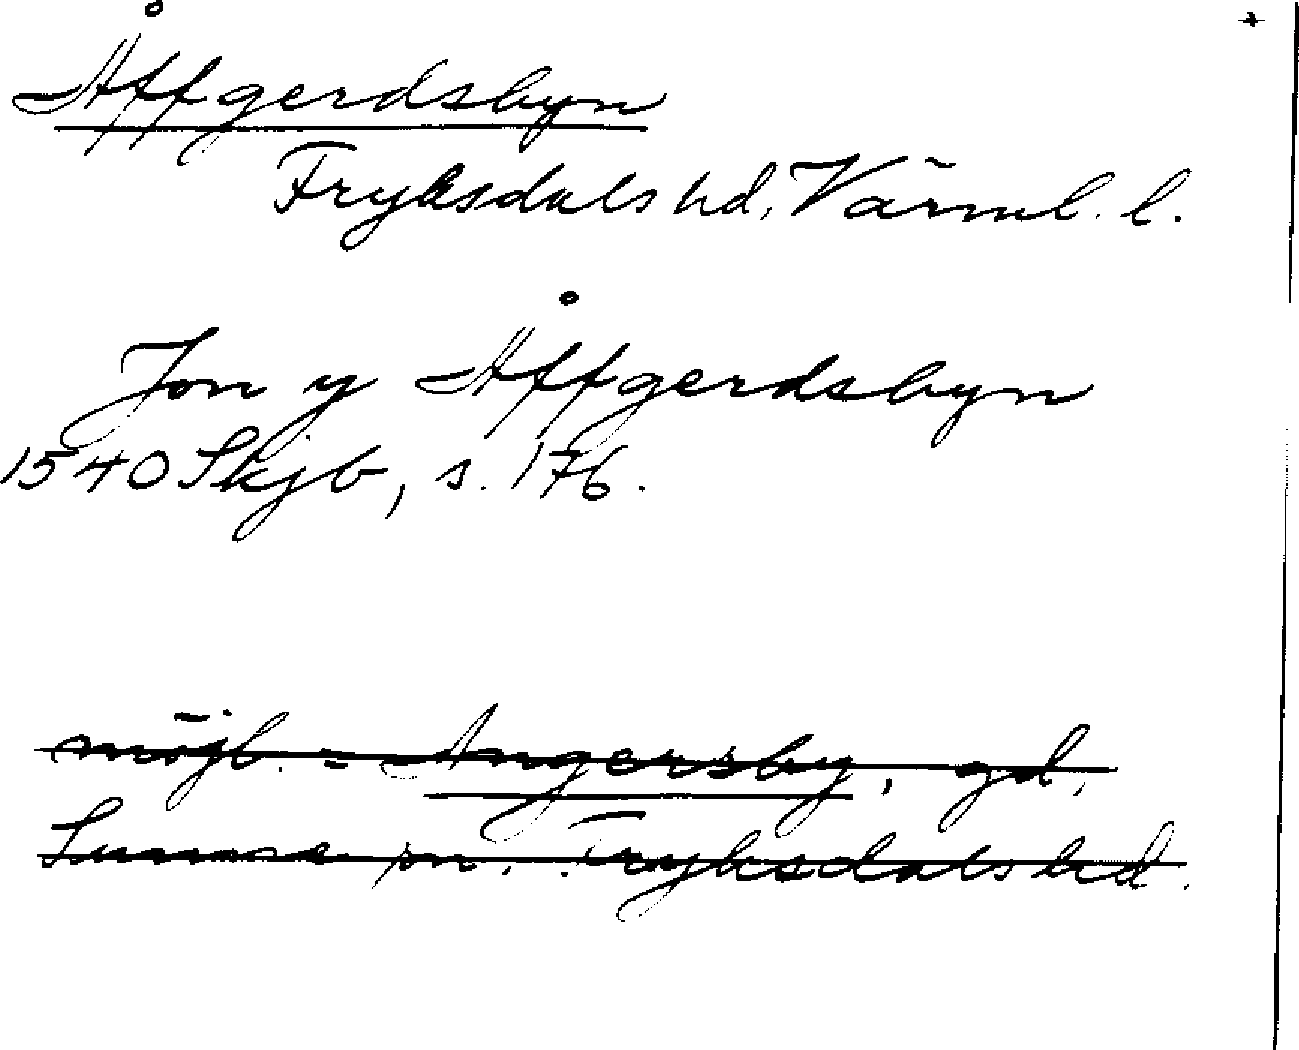 +
Åffgerdsbyn
Fryksdals hd, Värml. l.
Jon y Åffgerdsbyn
1540 Skjb, s. 176.
möjl. = Angersby, gd,
Sunne sn. Fryksdals hd.